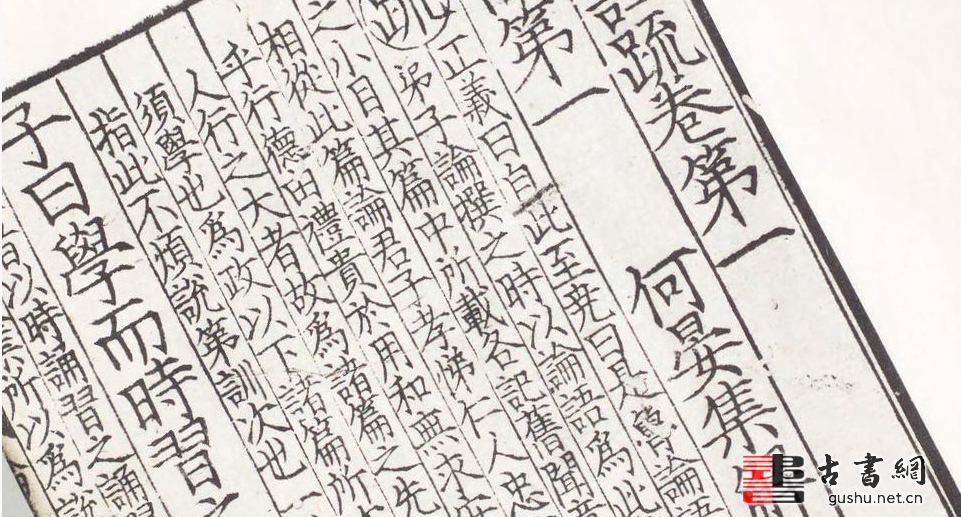 疏卷第一
何晏集
第一
疏
正義曰自此至堯曰是魯論語
弟子論撰之時以論語爲此
之小目其篇中所載各記舊聞意
相從此篇論君子孝悌仁人忠
乎行德由禮貴於用和無求安
人行之大者故爲諸篇之先
須學也爲政以下諸篇所
指此不煩說第訓次也一
子曰學而時習之
以時誦習之誦
所以爲說
古書網
gushu.net.cn